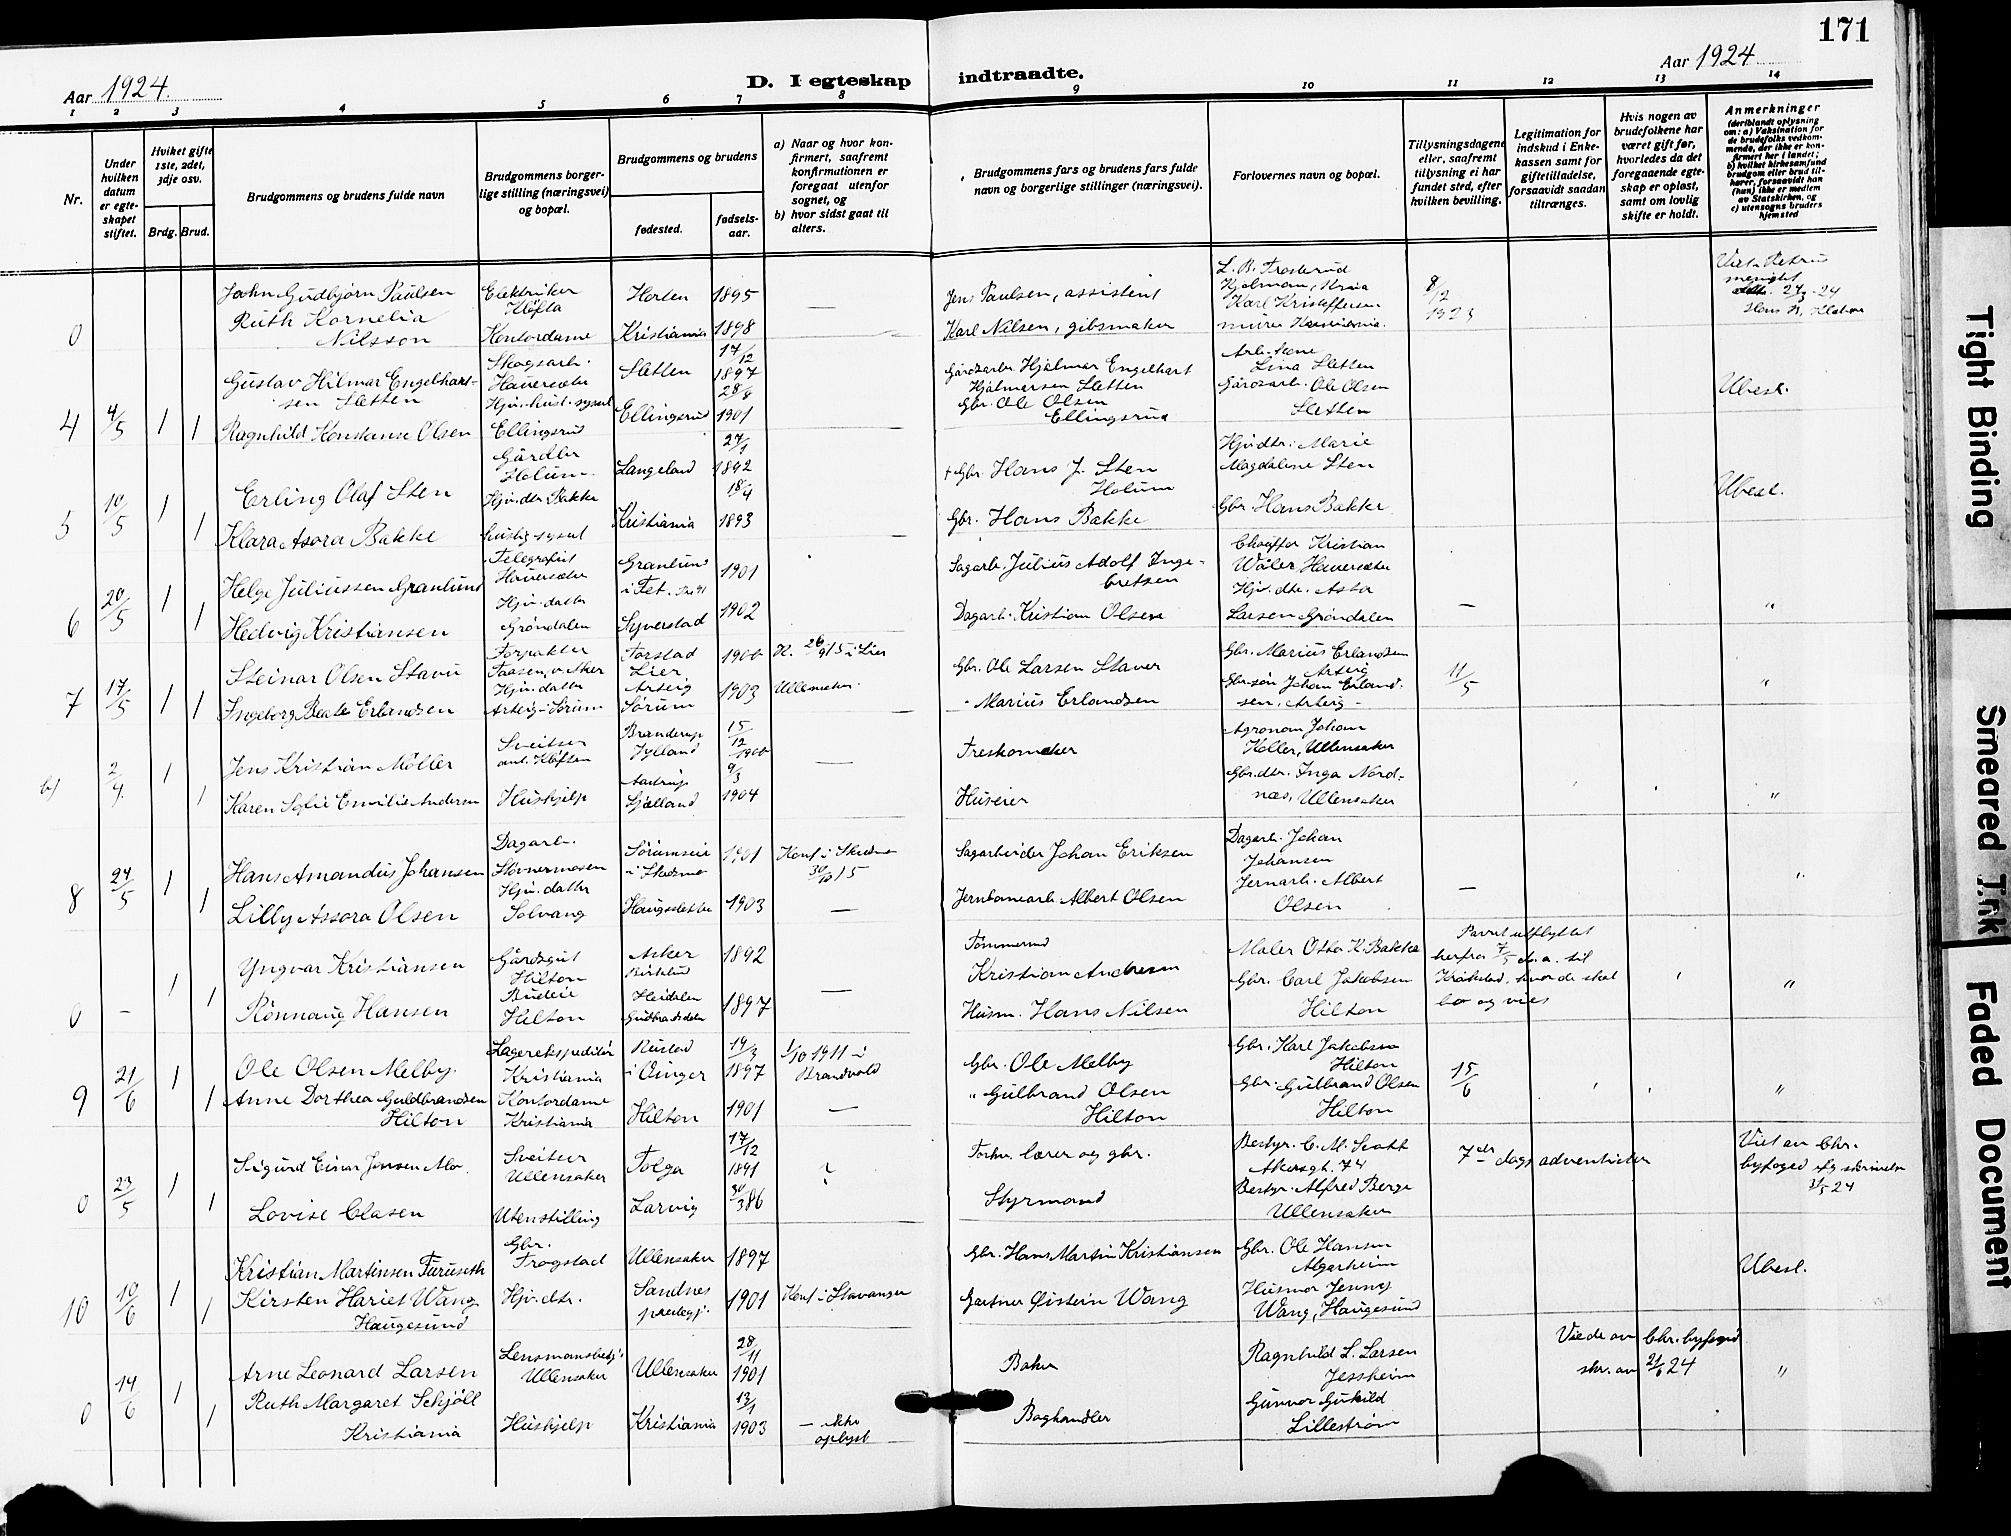 171
Aar 1924.
D. I egteskap indtraadte.
Aar 1924
1 2 3 4 5 6 7 8 9 10 11 12 13 14
Nr.
Under hvilken datum er egteskapet stiftet.
Hviket gifte 1ste, 2det, 3dje osv.
Brdg. Brud.
Brudgommens og brudens fulde navn
Brudgommens borgerlige stilling (næringsvei) og bopæl.
Brudgommens og brudens
fødested.
fødselsaar.
a) Naar og hvor konfirmert, saafremt konfirmationen er foregaat utenfor sognet, og
b) hvor sidst gaat til alters.
Brudgommens fars og brudens fars fulde navn og borgerlige stillinger (næringsvei).
Forlovernes navn og bopæl.
Tillysningsdagene eller, saafremt tillysning ei har fundet sted, efter hvilken bevilling.
Legitimation for indskud i Enkekassen samt for giftetilladelse, forsaavidt saadan tiltrænges.
Hvis nogen av brudefolkene har været gift før, hvorledes da det foregaaende egteskap er opløst, samt om lovlig skifte er holdt.
Anmerkninger
(deriblandt oplysning om: a) Vaksination for de brudefolks vedkommende, der ikke er konfirmert her i landet; b) hvilket kirkesamfund brudgom eller brud tilhører, forsaavidt han (hun) ikke er medlem av Statskirken, og c) utensogns bruders hjemsted
0 John Gudbjørn Paulsen Elektriker Kløfta Horten 1895 — Jens Paulsen, assistent
Ruth Kornelia Nilsson Kontordame Kristiania 1898 Karl Nilsen, gibsmaker Karl Kristoffersen 8/12 1923
4 4/5 1 1 Gustav Hilmar Engelhartsen Sletten Skogsarb. Hauersæter Sletten 17/12 1897 Gårdsarb. Hjalmar Engelhart Hjalmarsen Sletten Lina Sletten Ubesl.
Ragnhild Konstanse Olsen Hjv. hust. syssel Ellingsrud Ellingsrud 28/8 1901 Gbr. Ole Olsen Ellingsrud Gårdsarb. Ole Olsen Sletten
5 10/5 1 1 Erling Olaf Sten Gårdbr. Holum Langeland 27/1 1892 + Gbr. Hans J. Sten Holum Hjv. dtr. Marie Magdalene Sten Ubesl.
Klara Asora Bakke Hjv. dtr. Bakke huslig syssel Kristiania 18/4 1893 — Gbr. Hans Bakke Gbr. Hans Bakke
6 20/5 1 1 Helge Juliussen Granlund Telegrafist Hauersæter Granlund i Fet. 1901 Sagarb. Julius Adolf Ingebretsen Chauffør Kristian Wåler Hauersæter
Hedvig Kristiansen Hjv. datter Grøndalen Syverstad 1902 Dagarb. Kristian Olsen Hjv. dtr. Asta Larsen Grøndalen — "
7 17/5 1 1 Steinar Olsen Stavu Forpakter Taasen, v. Aker Forstad Lier 1900 K. 26/9 15 i Lier Gbr. Ole Larsen Staver Gbr. Marius Erlandsen Arteig 11/5 "
Ingeborg Beate Erlandsen Hjv. datter Arteig i Sørum Arteig Sørum 1903 Ullensaker — " Marius Erlandsen Gbr. søn Johan Erlandsen, Arteig
b) 2/4 1 1 Jens Kristian Møller Sveitser ant. Kløften Branderup Jylland 15/12 1900 — Treskomaker Agronom Johan Koller, Ullensaker
Karen Sofie Emilie Andersen Hushjelp Aastrup Sjælland 9/3 1904 Huseier Gbr. dtr. Inga Nordnæs, Ullensaker "
8 24/5 1 1 Hans Amandus Johansen Dagarb. Stovnermosen Sørumseie i Skedsmo 1901 Konf. i Skedsmo 15 Sagarbeider Johan Eriksen Dagarb. Johan Johansen "
Lilly Assora Olsen Hjv. datter Solvang Haugsletta 1903 — Jernbanearb. Albert Olsen Jernarb. Albert Olsen —
0 — 1 1 Yngvar Kristiansen Gårdsgut Hilton Asker 1892 Tømmermd Kristian Andersen Maler Otto K. Bakke Parret utflyttet herfra 7/5 d. a. til Kråkstad, hvor de skal bo og vies "
Rønnaug Hansen Budeie Hilton Heidalen Gudbrandsdalen 1897 — Husm. Hans Nilsen Gbr. Carl Jakobsen Hilton
9 21/6 1 1 Ole Olsen Melby Lagerekspeditør Kristiania Rustad i Vinger 19/3 1897 1/10 1911 i Brandvold Gbr. Ole Melby Gbr. Karl Jakobsen Hilton 15/6 "
Anne Dorthea Guldbrandsen Hilton Kontordame Kristiania Hilton 1901 — " Gulbrand Olsen Hilton Gbr. Gulbrand Olsen Hilton
0 23/5 1 1 Sigurd Einar Jensen Mo. Sveitser Ullensaker Tolga 17/12 1891 ? Forhv. lærer og gbr. Bestyr. C. M. Scott Akersgt. 74 7de dags adventister Viet av Chr. byfoged efg skrivelse 24
Lovise Clasen Uten stilling Larvig 386 Styrmand Bestyr. Alfred Berge Ullensaker
10 10/6 1 1 Kristian Martinsen Furuseth Gbr. Trogstad Ullensaker 1897 Gbr. Hans Martin Kristiansen Gbr. Ole Hansen Algarheim Ubesl.
Kirsten Hariet Wang Haugesund Hjv. dtr. Sandnes prestegj. 1901 Konf. i Stavanger Gartner Øistein Wang Husmor Jenny Wang, Haugesund
0 14/6 1 1 Arne Leonard Larsen Lensmansbetj. Ullensaker Ullensaker 28/11 1901 Baker Ragnhild L. Larsen Jessheim Viede av Chr. byfoged skr. av 21/6 24 "
Ruth Margaret Schjöll Kristiania Hushjelp Kristiania 13/1 1903 — ikke oplyst Boghandler Gunvor Lillestrøm
Tight Binding
Smeared Ink
Faded Document